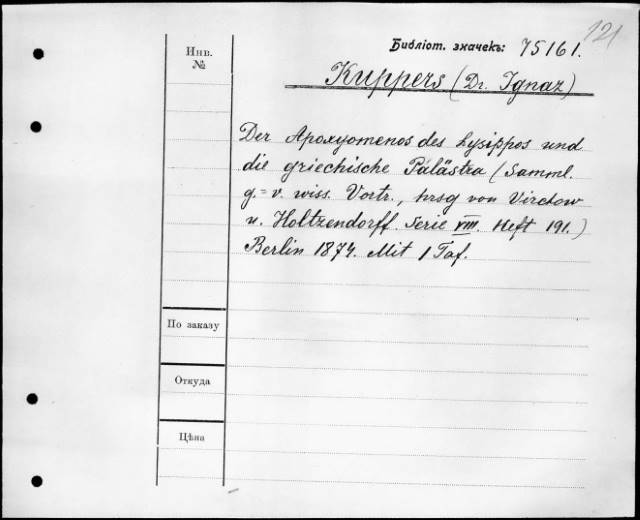 121
Библіот. значекъ: 75161.
Инв.
№
Kuppers (Dr. Ignaz)
Der Apoxyomenos des Lysippos und
die griechische Palästra (Samml.
g.=v. wiss. Vortr., hrsg von Virchow
u. Holtzendorff. Serie VIII. Heft 191.)
Berlin 1874. Mit 1 Taf.
По заказу
Откуда
Цѣна